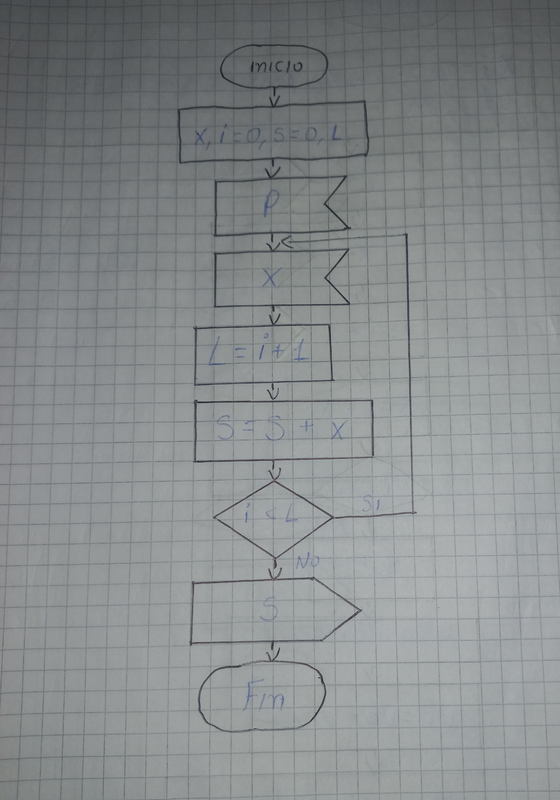 inicio
x, i=0, S=0, L
P
X
L = i + 1
S = S + X
i < L
Si
No
S
Fin